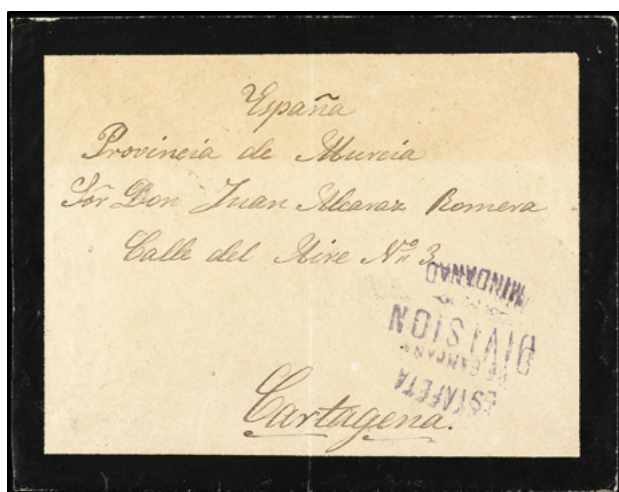 España
Provincia de Murcia
Sor Don Juan Alcaraz Romera
Calle del Aire Nº 3
Cartagena.
ESTAFETA
DE CAMPAÑA
DIVISION
MINDANAO